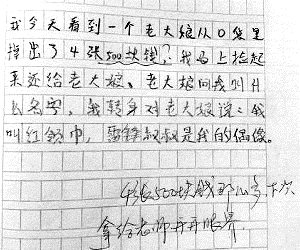 我今天看到一个老大娘从口袋里
掉出了4张500块钱?我马上捡起
来还给老大娘、老大娘问我叫什
么名字,我转身对老大娘说:我
叫红领巾,雷锋叔叔是我的偶像。
4张500块钱那么多下次
拿给老师开开眼界.